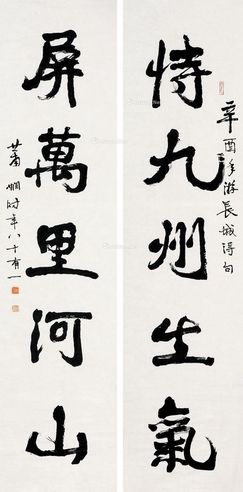 辛酉年游長城得句
恃九州生氣
屏萬里河山
蕭嫻时年八十有一